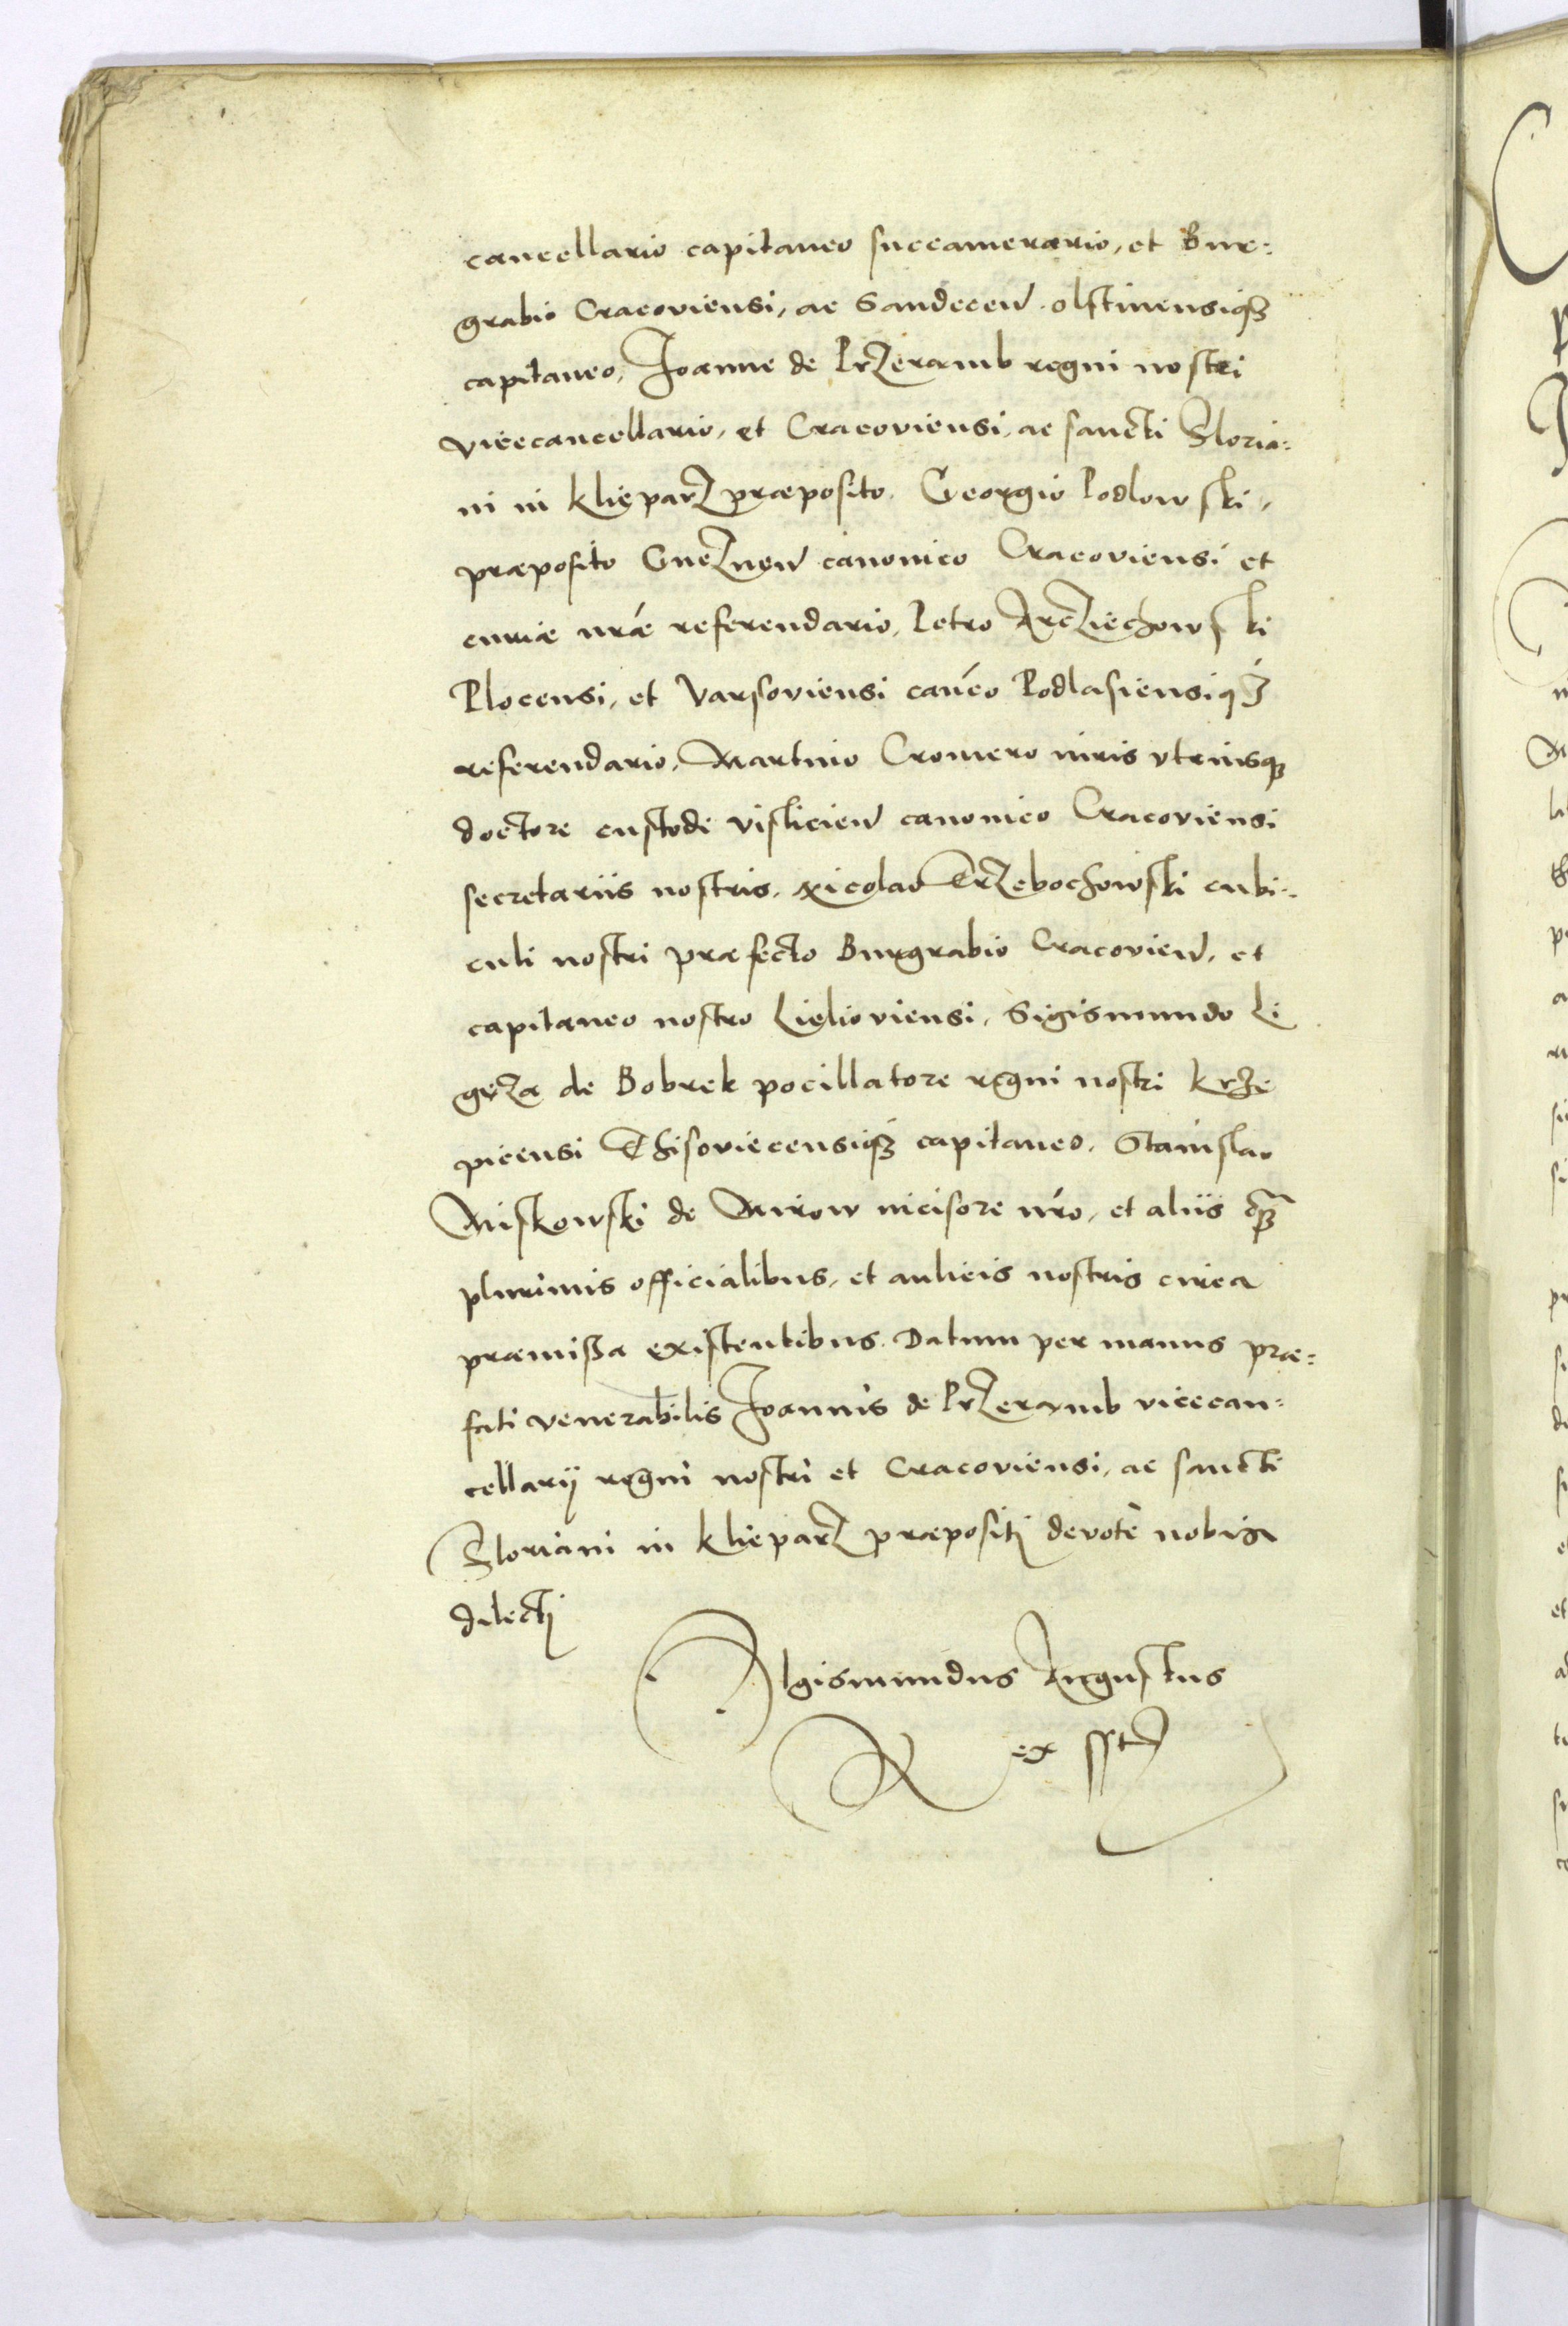 cancellario capitaneo succamerario, et Bur:
grabio Cracoviensi, ac Sandecen olstinensiq3
capitaneo, Joanne de PrZeramb regni nostri
vicecancellario, et Cracoviensi, ac sancti Floria:
ni in kliepar Z præposito. Georgio Podlowski,
præposito GneZnen canonico Cracoviensi et
curiæ nræ referendario, Petro ArcZiechowski
Plocensi, et Varsoviensi caneo Podlasiensiq3
referendario, Martino Cromero iuris vtriusq3
doctore custode visliciens canonico Cracoviensi
secretariis nostris. Nicolao TrZebochowski cubi:
culi nostri præfecto Burgrabio Cracovien, et
capitaneo nostro Lielioviensi, Sigismundo Li
geza de Bobrek pocillatore regni nostri krze
picensi Thisoviecensiq3 capitaneo. Stanislao
Miskowski de Mirow incisore nro, et aliis q3
plurimis officialibus, et aulicis nostris circa
præmißa existentibus. Datum per manus præ:
fati venerabilis Joannis de PrZeramb vicecan:
cellarij regni nostri et Cracoviensi, ac sancti
Floriani in klieparZ præpositi devote nobis
dilecti
Sigismundus Augustus
Rex sst